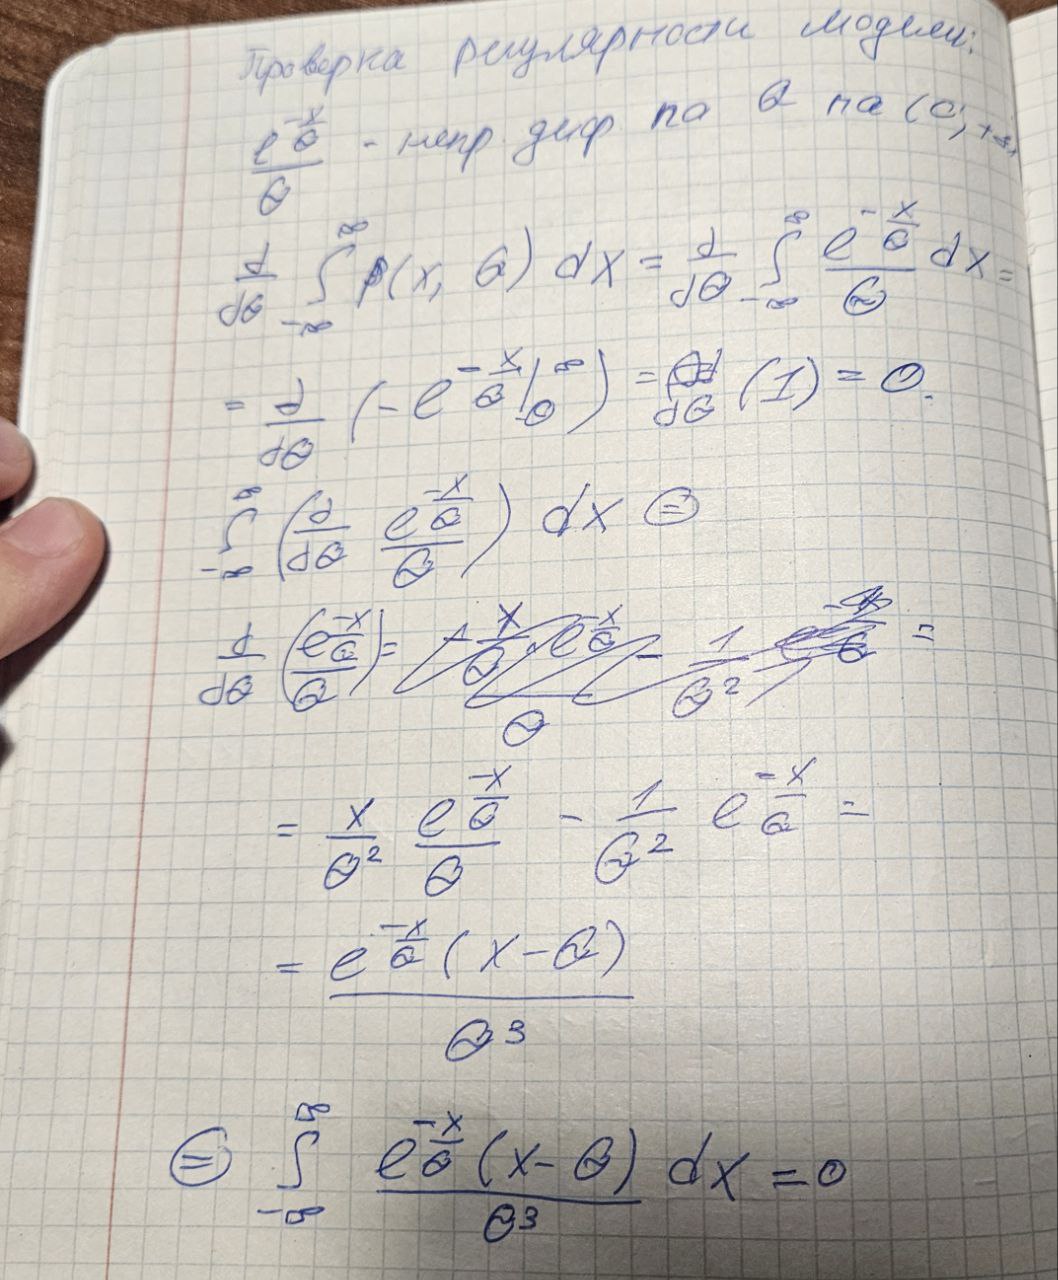 Проверка регулярности модели:
e^{-x/θ}/θ - непр диф по θ на (0; +∞)
d/dθ ∫_{-∞}^{∞} p(x, θ) dx = d/dθ ∫_{-∞}^{∞} e^{-x/θ}/θ dx =
= d/dθ (-e^{-x/θ} |_0^∞) = d/dθ (1) = 0.
∫_{-∞}^{∞} (d/dθ e^{-x/θ}/θ) dx ⊜
d/dθ (e^{-x/θ}/θ) =
= x/θ² e^{-x/θ}/θ - 1/θ² e^{-x/θ} =
= e^{-x/θ} (x-θ) / θ³
⊜ ∫_{-∞}^{∞} e^{-x/θ} (x-θ) / θ³ dx = 0